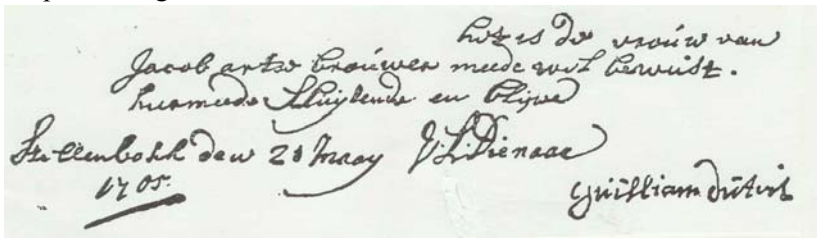 het is de vrouw van
Jacob artse brouwer meede wel bewust.
hiermeede Sluijtende en blijve
Stellenbosch den 28 maay V:L: Dienaar
1705.
Guilliam dutoit